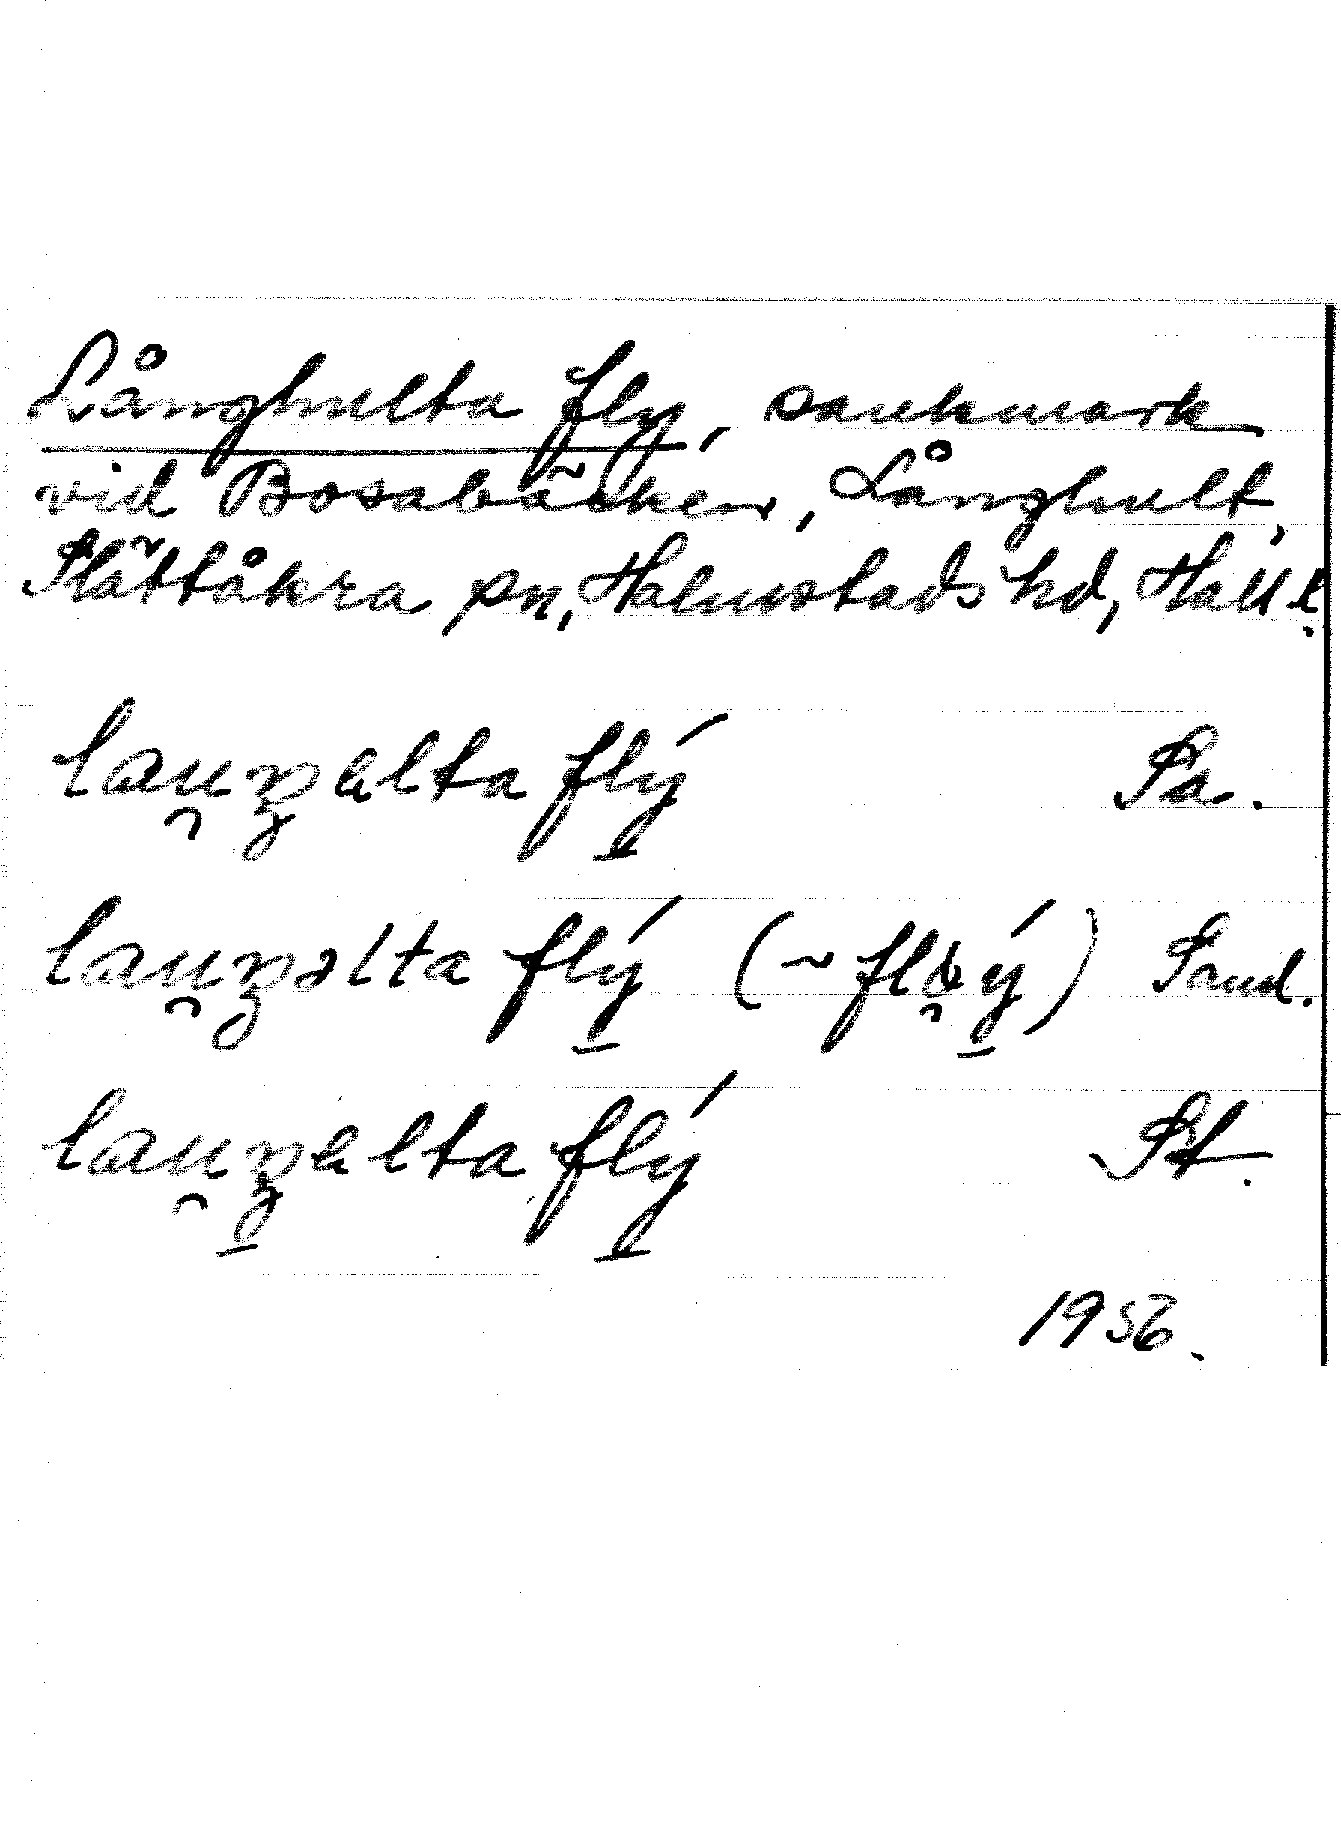 Långhulta fly, sankmark
vid Bossabäcken, Långhult,
Slättåkra sn, Halmstads hd, Hall. l.
lau̯ŋalta flý Sa.
lau̯ŋəlta flý (~ flo̯ý) Sand.
lau̯ŋalta flý St.
1956.